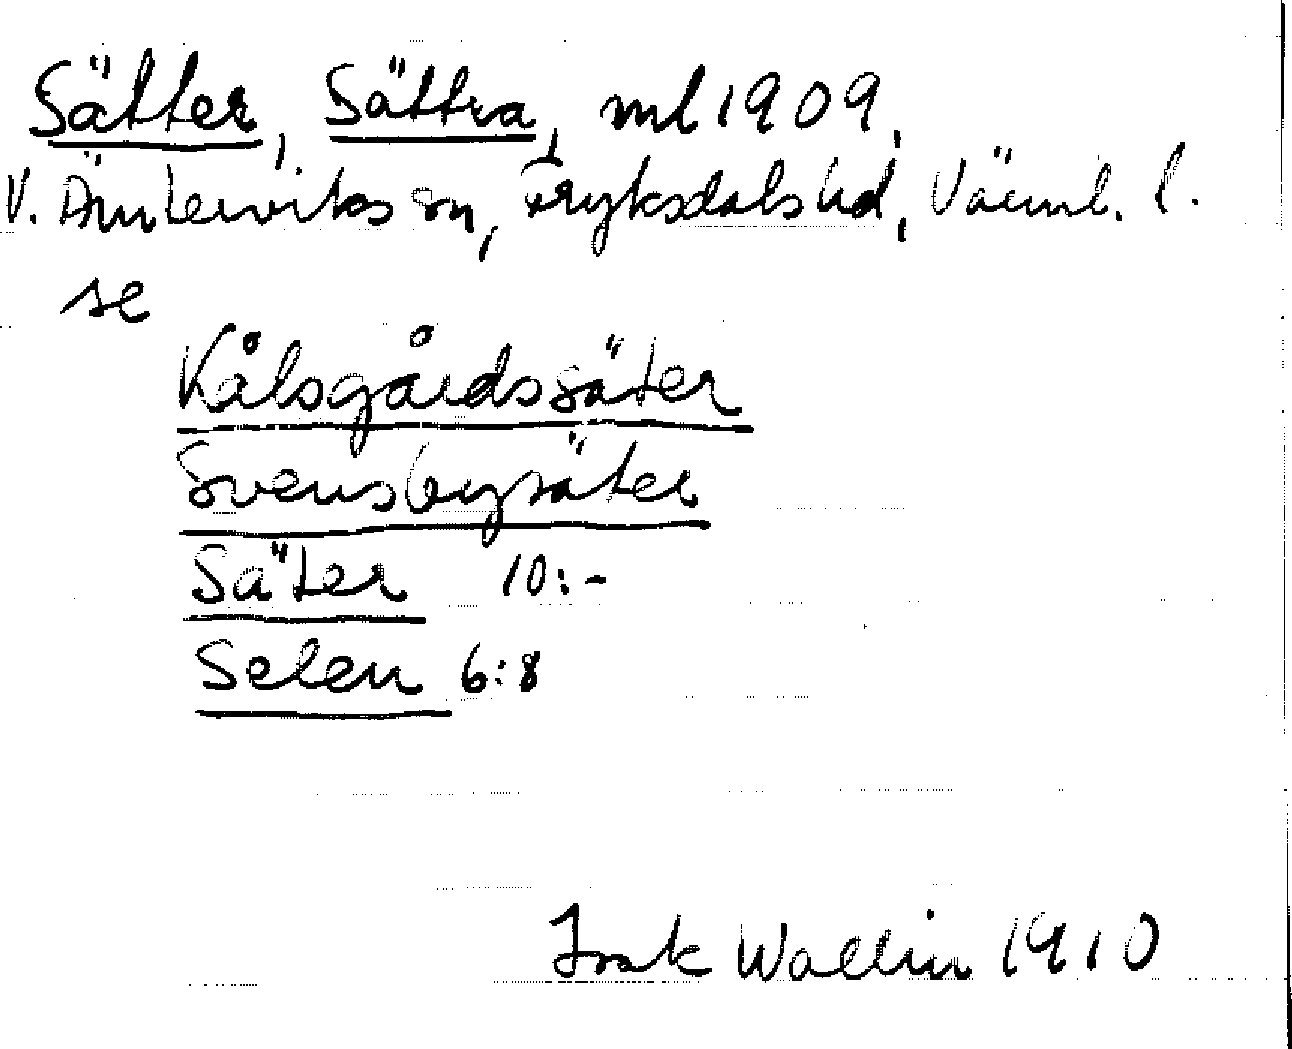 Sätter, Sättra, ml 1909,
V. Ämterviks sn, Fryksdals hd, Värml. l.
se
Kålsgårdssäter
Svensbysäter
Säter 10:-
Selen 6:8
Isak Wallin 1910